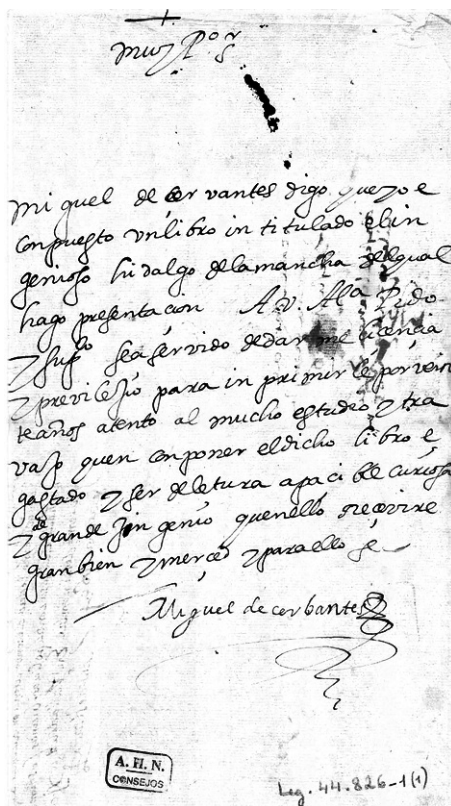 muy Pᵒˢʳ
Miguel de cervantes digo que yo e
conpuesto un libro intitulado el in
genioso hidalgo de la mancha del qual
hago presentacion A. V. Alª Pido
y supᶜᵒ sea servido de darme licencia
y previlejio para inprimirle por vein
te años atento al mucho estudio y tra
vajo quen conponer el dicho libro e
gastado y ser de letura apacible curiosa
y de grande injenio quenello recevire
gran bien y merced y para ello
Miguel de cerbantes
A. H. N.
CONSEJOS
Leg. 44.826-1(1)